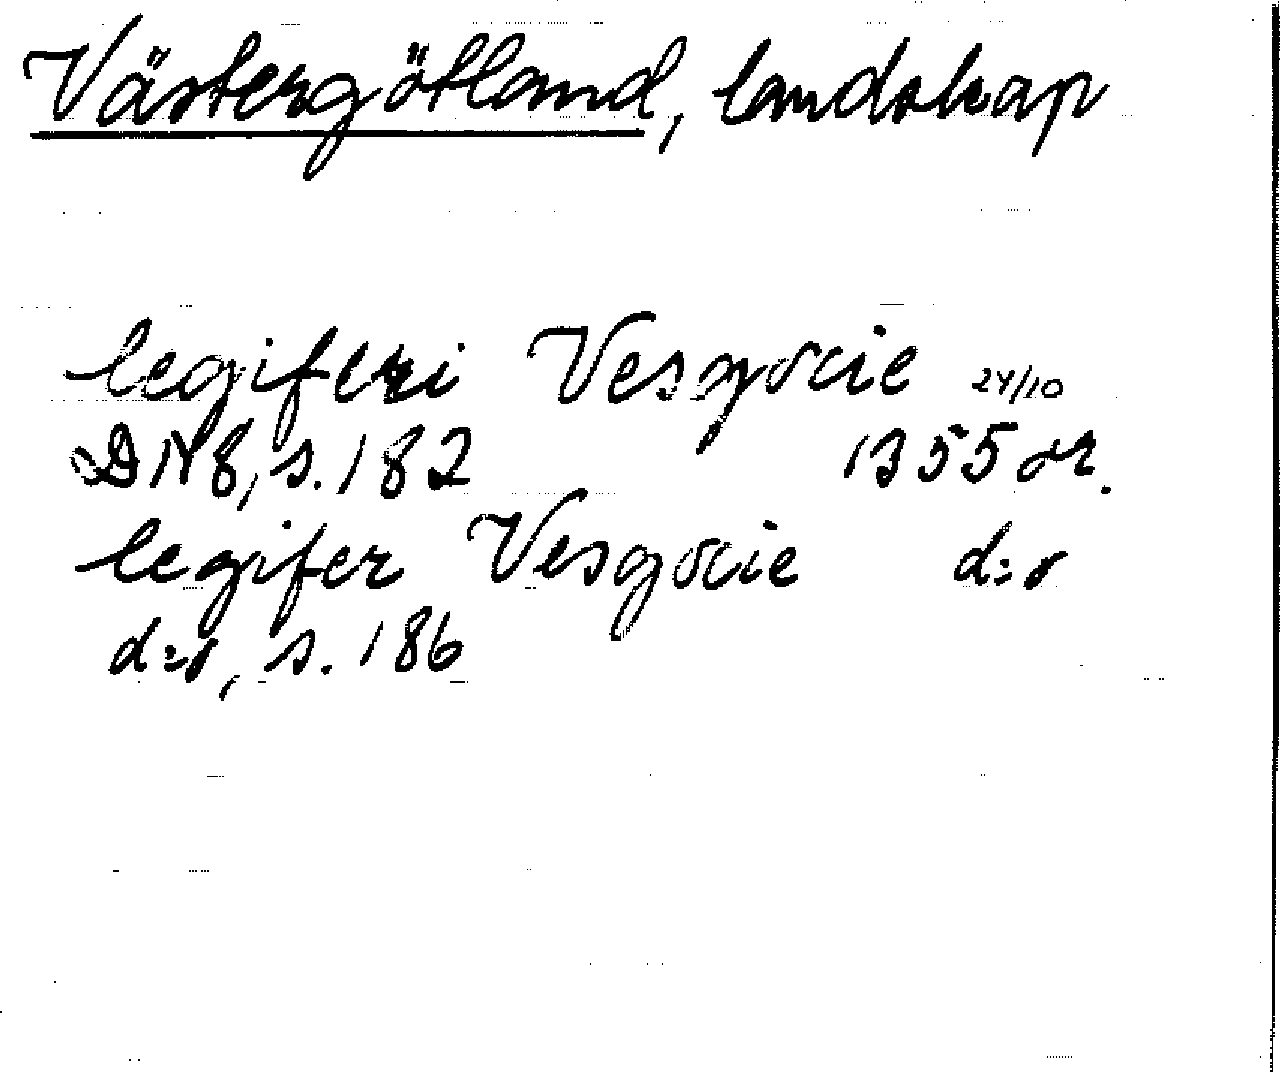 Västergötland, landskap
legiferi Vesgocie 24/10
DN 8, s. 182 1355 or.
legifer Vesgocie d:o
d:o, s. 186